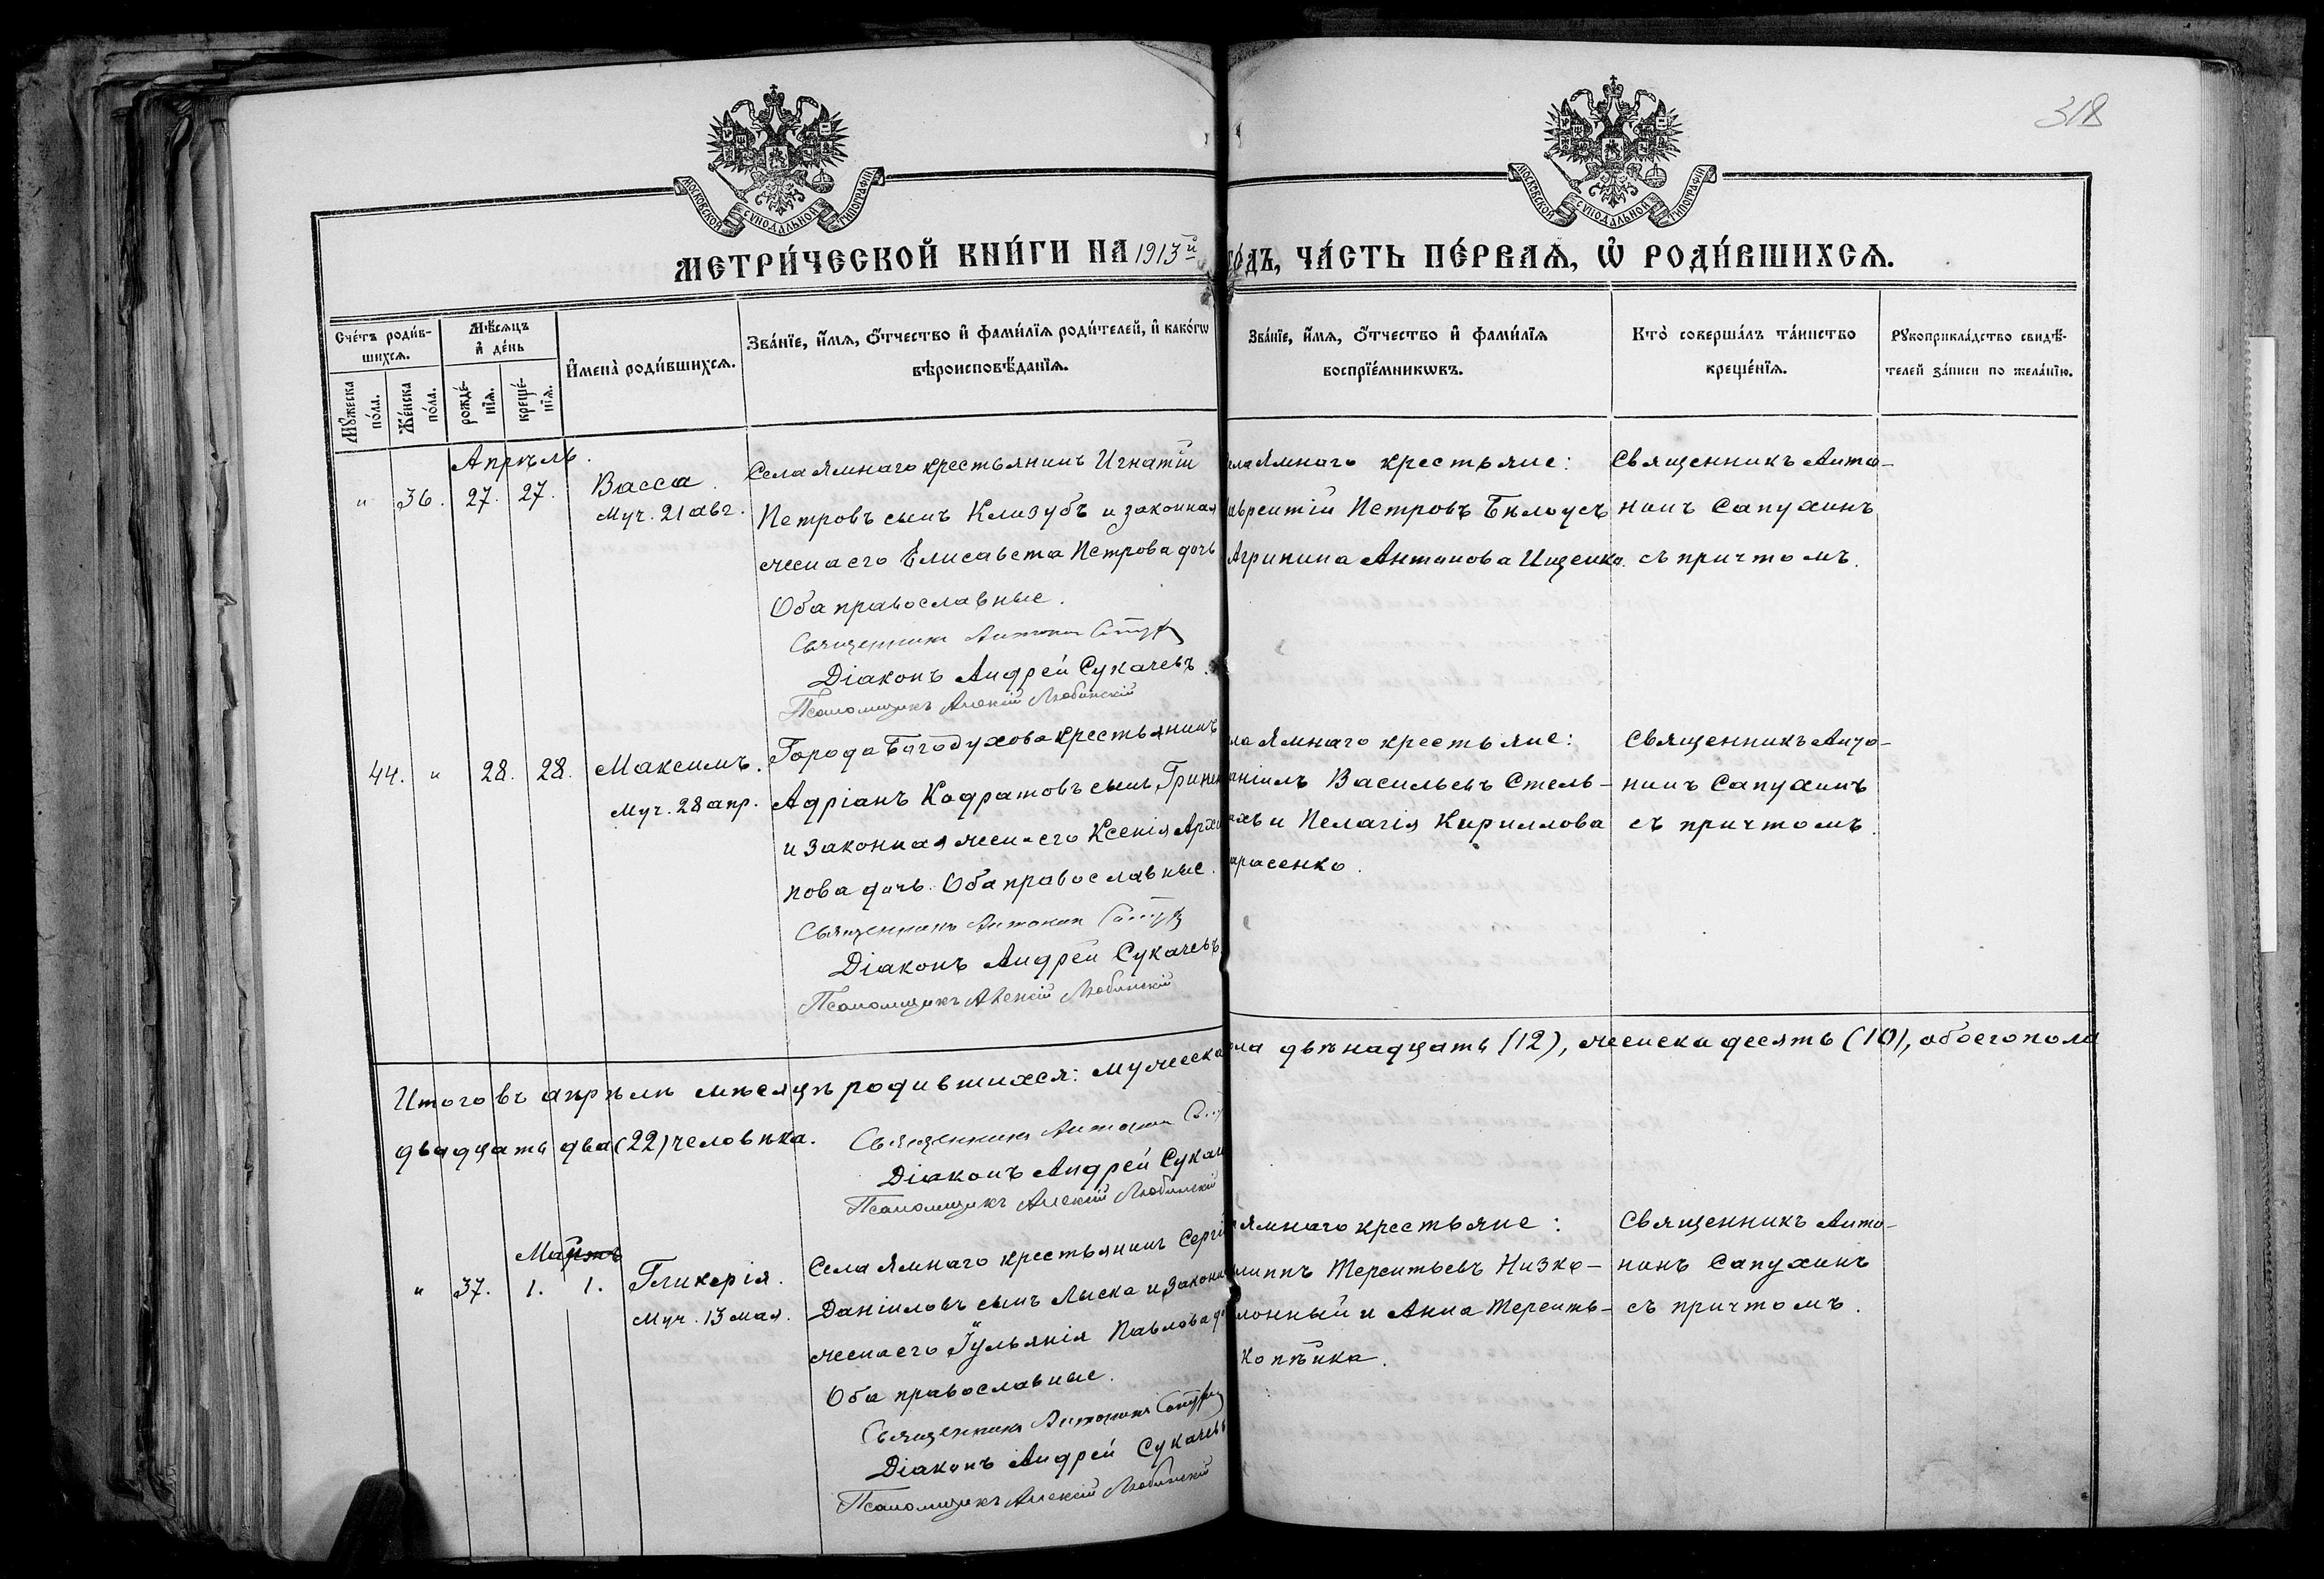 318
МОСКОВСКОЙ СѴНОДАЛЬНОЙ ТИПОГРАФІИ
МОСКОВСКОЙ СѴНОДАЛЬНОЙ ТИПОГРАФІИ
МЕТРИ́ЧЕСКОЙ КНИ́ГИ НА 1913й го́дъ, ЧА́СТЬ ПЕ́РВАѦ, Ѡ҆ РОДИ́ВШИХСѦ.
Сче́тъ роди́в-
шихсѧ.
Мѣ́сѧцъ
и҆ де́нь
Мꙋ́жеска
по́ла.
Же́нска
по́ла.
рожде́-
нїѧ.
креще́-
нїѧ.
И҆мена̀ роди́вшихсѧ.
Зва́нїе, и҆́мѧ, ѻ҆́тчество и҆ фами́лїѧ роди́телей, и҆ како́гѡ
вѣроисповѣ́данїѧ.
Зва́нїе, и҆́мѧ, ѻ҆́тчество и҆ фами́лїѧ
воспрїе́мникѡвъ.
Кто̀ соверша́лъ та́инство
креще́нїѧ.
Рꙋкоприкла́дство свидѣ́-
телей за́писи по жела́нїю.
Апрѣль.
" 36. 27. 27. Васса.
Муч. 21 авг.
Села Ямнаго крестьянинъ Игнатій
Петровъ сынъ Клизубъ и законная
жена его Елисавета Петрова дочь
Оба православные.
Священникъ Антонин
Діаконъ Андрей Сукачевъ.
Псаломщикъ Алексій Любинскій
ела Ямнаго крестьяне:
аврентій Петровъ Бѣлоусъ
Агрипина Антонова Ищенко.
Священникъ Анто-
нинъ Сапухинъ
съ причтомъ.
44. " 28. 28. Максимъ.
Муч. 28 апр.
Города Богодухова крестьянинъ
Адріанъ Кодратовъ сынъ
и законная жена его Ксенія Архи
пова дочь. Оба православные.
Священникъ Антонин
Діаконъ Андрей Сукачевъ
Псаломщикъ Алексій Любинскій
ла Ямнаго крестьяне:
аніилъ Васильевъ Стель-
ахъ и Пелагія Кириллова
арасенко.
Священникъ Анто-
нинъ Сапухинъ
съ причтомъ.
Итого въ апрѣлѣ мѣсяцѣ родившихся: мужеска ола двѣнадцать (12), женска десять (10), обоего пола
двадцать два (22) человѣка.
Священникъ Антонин
Діаконъ Андрей Сукач
Псаломщикъ Алексій Любинскій
Май
" 37. 1. 1. Гликерія.
Муч. 13 мая.
Села Ямнаго крестьянинъ Сергі
Даніиловъ сынъ Лыска и законн
жена его Іульянія Павлова д
Оба православные.
Священникъ Антонинъ
Діаконъ Андрей Сукачевъ
Псаломщикъ Алексій Любинскій
Ямнаго крестьяне:
липпъ Терентьевъ Низко-
лонный и Анна Теренть-
Копѣйка.
Священникъ Анто-
нинъ Сапухинъ
съ причтомъ.